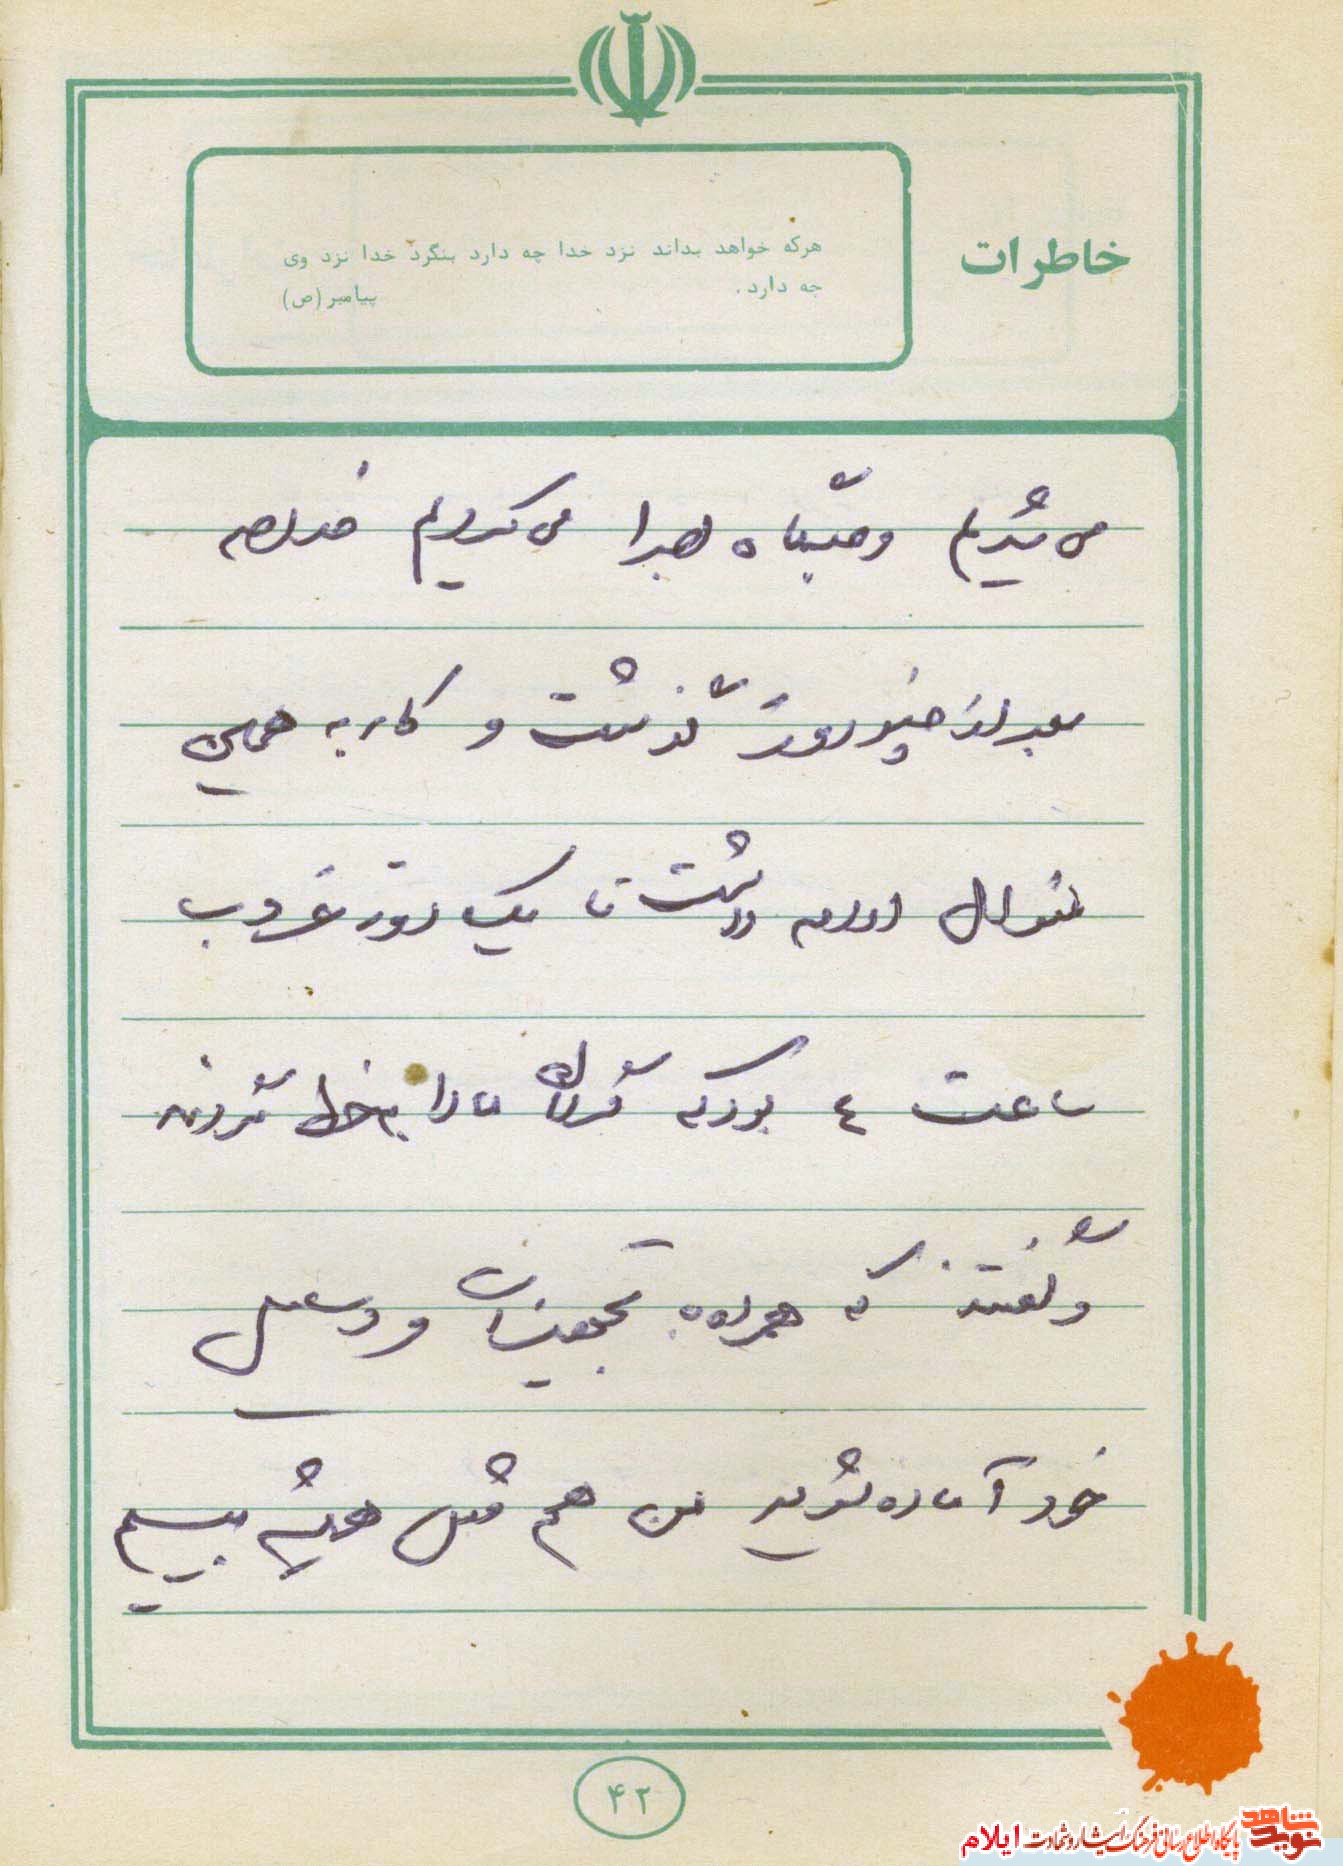 خاطرات
هرکه خواهد بداند نزد خدا چه دارد بنگرد خدا نزد وی
چه دارد.
پیامبر (ص)
می شدیم و شبانه اجرا می کردیم خلاصه
بعد از چند روز گذشت و کار به همین
منوال ادامه داشت تا یک روز غروب
ساعت ٤ بود که گردان ما را به خط کردند
و گفتند که همراه تجهیزات و وسایل
خود آماده شوید من هم مثل همیشه بیسیم
۴۲
نوید شاهد
پایگاه اطلاع رسانی فرهنگ ایثار و شهادت ایلام